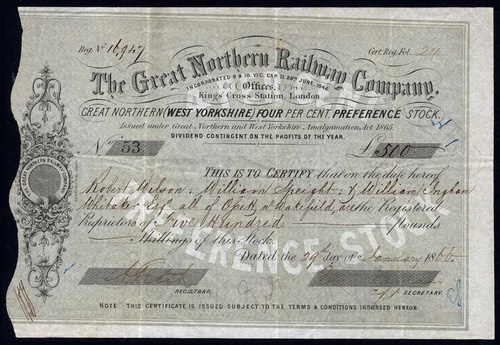 Reg. No 16,947
Cert. Reg. Fol. 24
The Great Northern Railway Company.
INCORPORATED 9 & 10. VIC. CAP. 71. 26TH JUNE, 1846.
Offices,
King's Cross Station, London.
GREAT NORTHERN (WEST YORKSHIRE) FOUR PER CENT. PREFERENCE STOCK,
Issued under Great Northern and West Yorkshire Amalgamation Act 1865.
DIVIDEND CONTINGENT ON THE PROFITS OF THE YEAR.
No 53
£500
THIS IS TO CERTIFY that on the date hereof
Robert Wilson, William Speight, & William Ingham
Whitaker Esqs. all of Ossett, nr Wakefield, are the Registered
Proprietors of Five Hundred Pounds
Shillings of this Stock.
Dated the 29th day of January 1866
REGISTRAR.
SECRETARY.
NOTE THIS CERTIFICATE IS ISSUED SUBJECT TO THE TERMS & CONDITIONS INDORSED HEREON.
GREAT NORTHERN RAILWAY COMPANY
PREFERENCE STOCK